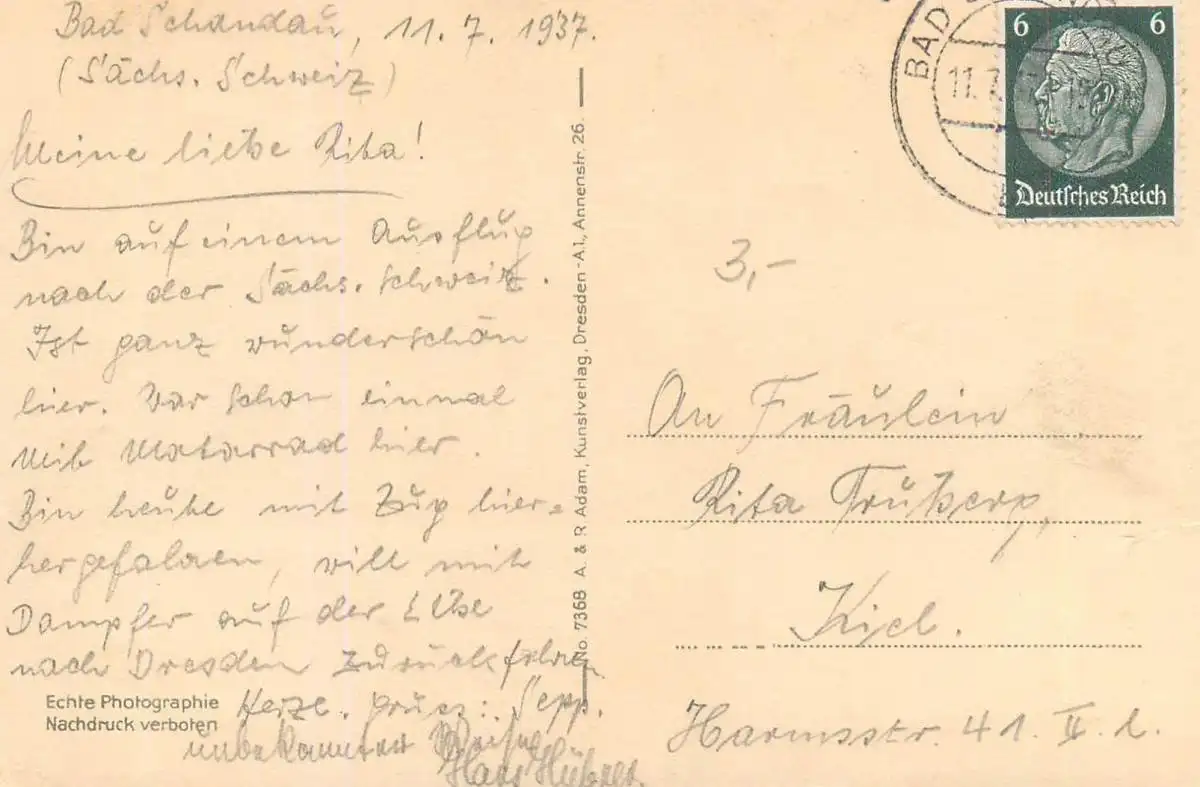 Bad Schandau, 11. 7. 1937.
(Sächs. Schweiz)
Meine liebe Rita!
Bin auf einem Ausflug
nach der Sächs. Schweiz.
Ist ganz wunderschön
hier. War schon einmal
mit Motorrad hier.
Bin heute mit Zug hier=
hergefahren, will mit
Dampfer auf der Elbe
nach Dresden zurückfahren
Herzl. Gruss: Sepp.
unbekannter Weise
Hans
Echte Photographie
Nachdruck verboten
No. 7368 A. & R. Adam, Kunstverlag, Dresden-A.1, Annenstr. 26.
BAD
11.7.
6 6
Deutsches Reich
3,-
An Fräulein
Rita
Kiel.
Harmsstr. 41. II. l.